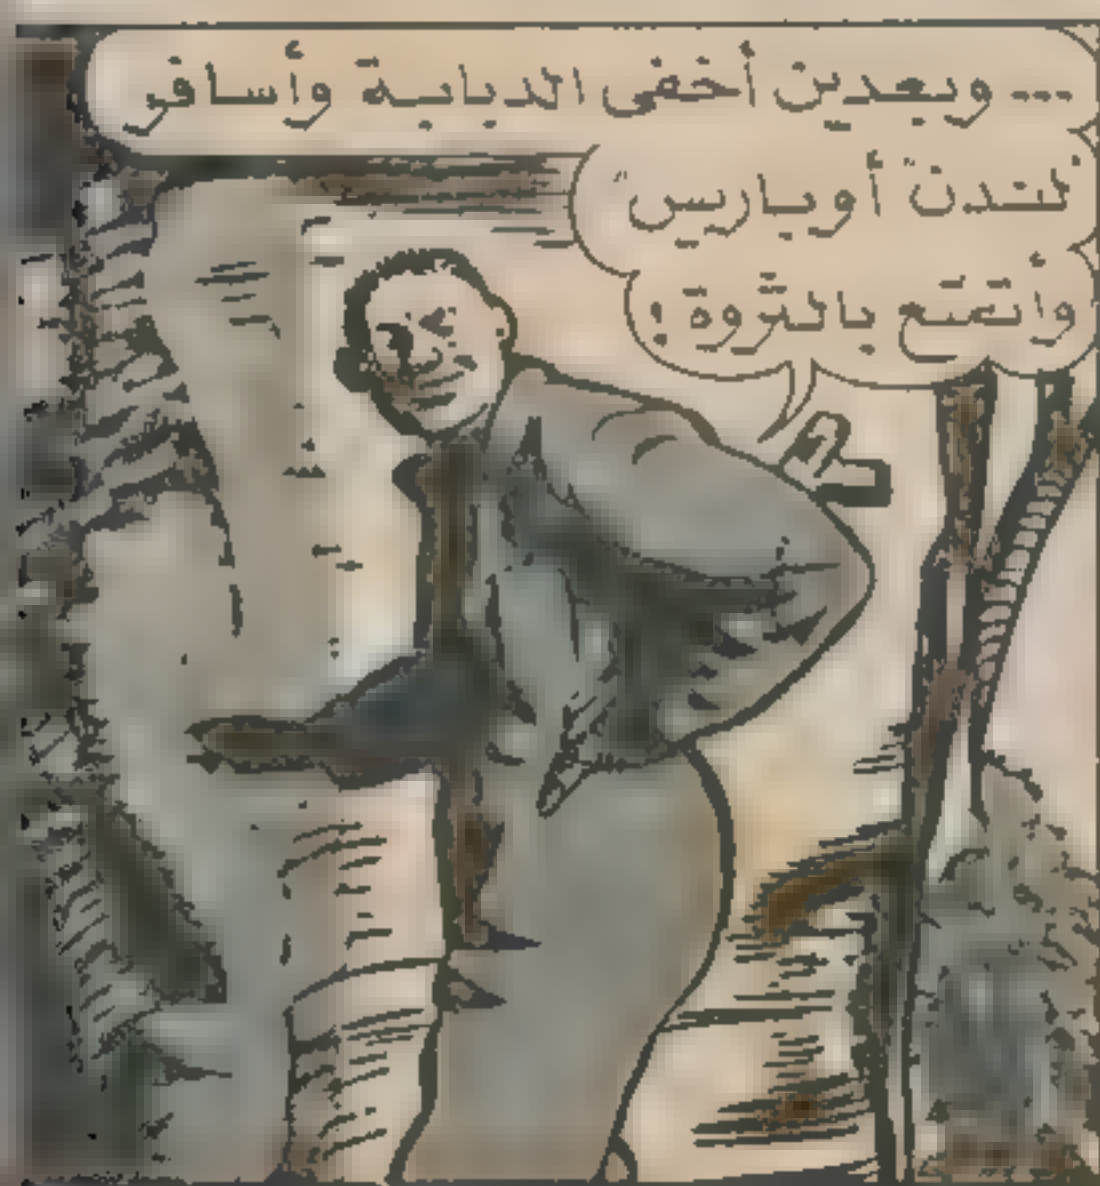 ... وبعدين أخفى الدبابة وأسافر
لندن أو باريس
وأتمتع بالثروة !